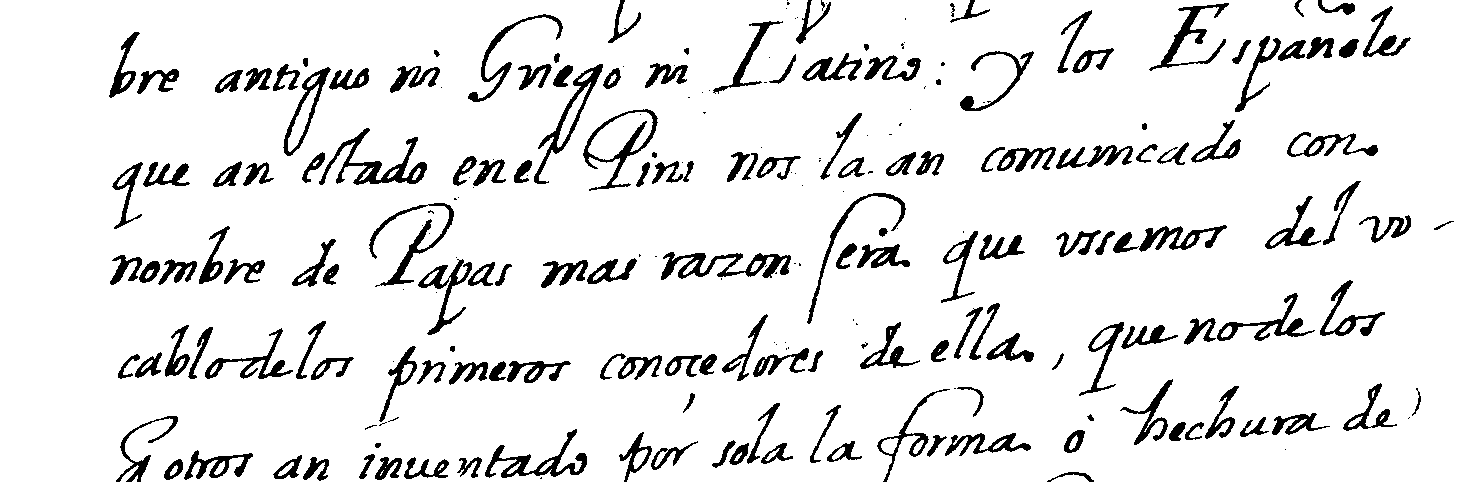 bre antiguo ni Griego ni Latino: y los Españoles
que an estado en el Piru nos la an comunicado con
nombre de Papas mas razon sera que vssemos del vo-
cablo de los primeros conoçedores de ella, que no de los
q̃ otros an inuentado por sola la forma ó hechura de